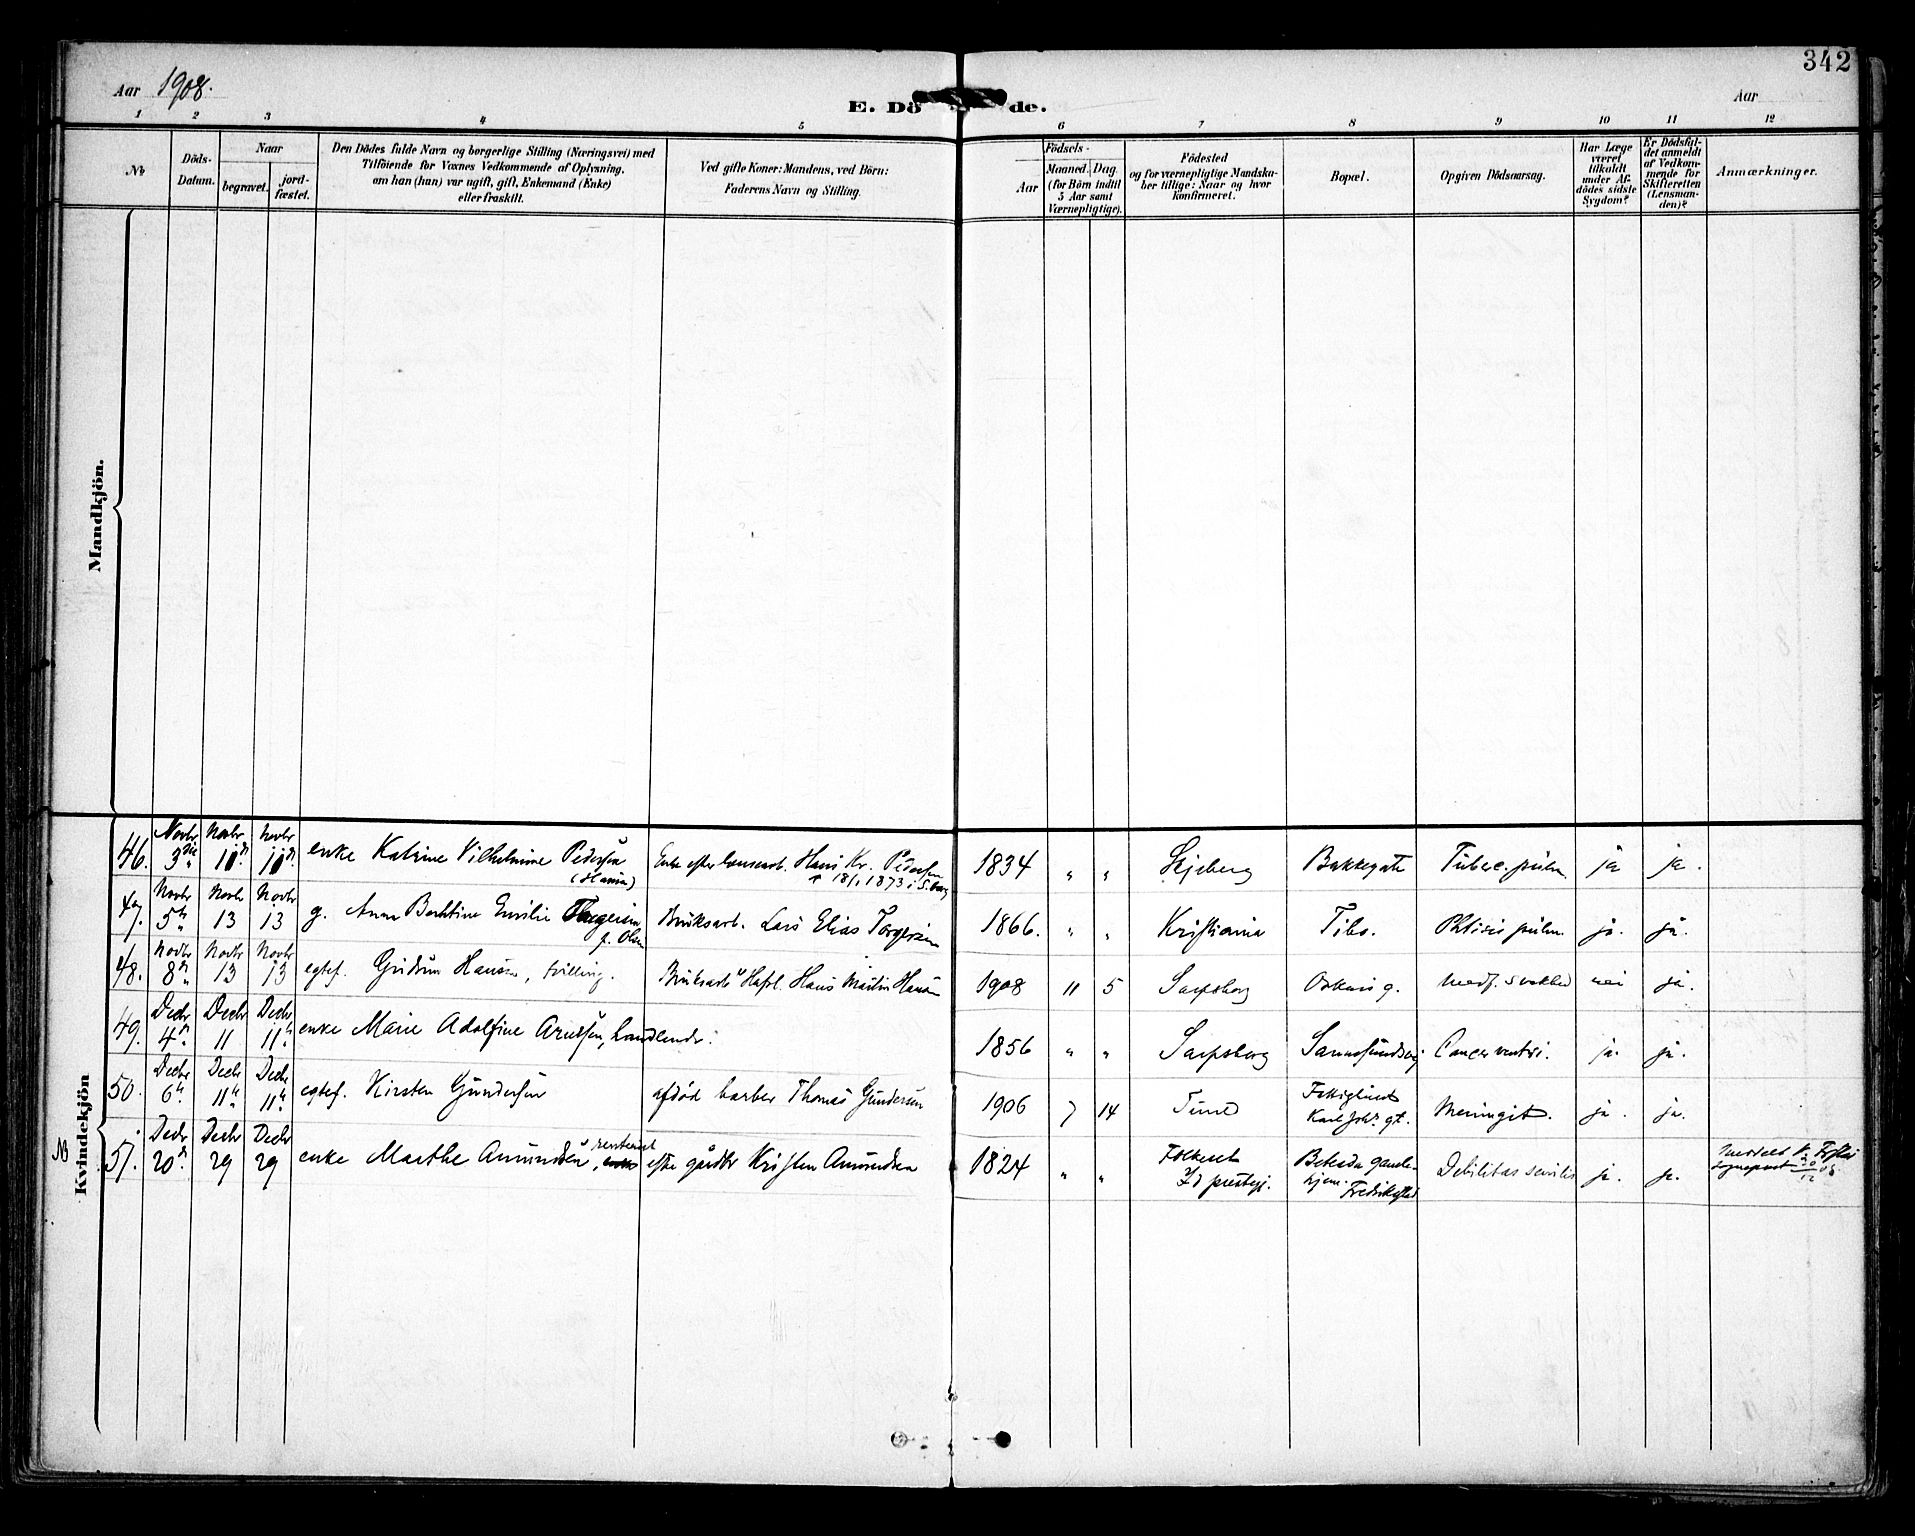 342
Aar 1908.
Aar
E. Dö de.
1 2 3 4 5 6 7 8 9 10 11 12
No
Döds-
Datum.
Naar
begravet.
jord-
fæstet.
Den Dödes fulde Navn og borgerlige Stilling (Næringsvei) med
Tilföiende for Voxnes Vedkommende af Oplysning,
om han (hun) var ugift, gift, Enkemand (Enke)
eller fraskilt.
Ved gifte Koner: Mandens, ved Börn:
Faderens Navn og Stilling.
Födsels-
Aar
Maaned. Dag.
(for Börn indtil
5 Aar samt
Værnepligtige).
Födested
og for værnepligtige Mandska-
ber tillige: Naar og hvor
konfirmeret.
Bopæl.
Opgiven Dödsaarsag.
Har Læge
været
tilkaldt
under Af-
dödes sidste
Sygdom?
Er Dödsfal-
det anmeldt
af Vedkom-
mende for
Skifteretten
(Lensman-
den)?
Anmærkninger.
Mandkjön.
Kvindekjön
46. Novbr 3die Novbr 10de Novbr 10de enke Katrine Vilhelmine Pedersen Enke efter Hans Kr. Pedersen 1834 " " Skjeberg Bakkegata Tuberc. pulm. ja ja.
† 18/1 1873 i S.borg
47. Novbr 5te Novbr 13 Novbr 13 g. Anna Berhtine Emilie Torgersen Bruksarb. Lars Elias Torgersen 1866. " " Kristiania Tibo. Phtisis pulm. ja. ja.
f. Olsen
48. Novbr 8de Novbr 13 Novbr 13 egtef. Gudrun Hansen, tvilling. Bruksarb. Hans Martin Hansen 1908 11 5 Sarpsborg Oskars g. Medf. svakhed nei ja.
49. Decbr 4de Decbr 11 Decbr 11te enke Marie Adolfine Arnesen, handlende. 1856 " " Sarpsborg Cancer ventri. ja. ja.
50. Decbr 6te Decbr 11te Decbr 11te egtef. Kirsten Gundersen afdød barber Thomas Gundersen 1906 7 14 Tune Karl Joh. gt. Meningit. ja. ja.
NB 51. Decbr 20de Decbr 29 Decbr 29 enke Marthe Amundsen, efter gårdbr Kristen Amundsen 1824 " " Id prestegj. Betesda gamle-
hjem. Fredrikstad Debilitas senilis ja. ja.